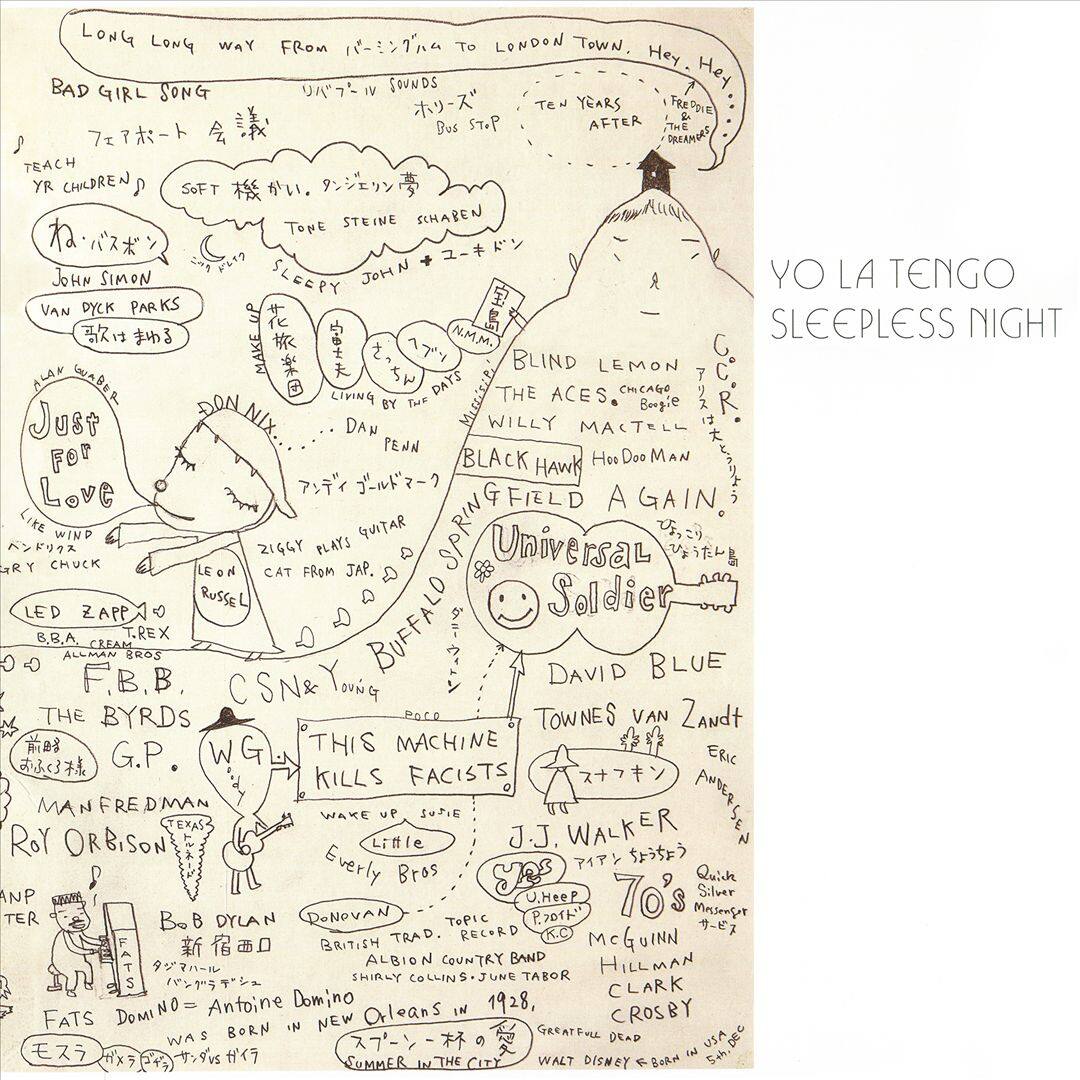 LONG LONG WAY FROM バーミングハム TO LONDON TOWN. Hey. Hey....
BAD GIRL SONG
リバプール SOUNDS
ホリーズ
BUS STOP
TEN YEARS
AFTER
FREDDIE
&
THE
DREAMERS
フェアポート 会議
TEACH
YR CHILDREN
SOFT 機かい。タンジェリン夢
TONE STEINE SCHABEN
ね・バスボン
ニック ドレイク
SLEEPY JOHN + ユーキドン
JOHN SIMON
VAN DYCK PARKS
歌はまわる
YO LA TENGO
SLEEPLESS NIGHT
MAKE UP
花旅楽団
富士夫
さっちん
ヘブン
N.M.M.
宝島
LIVING BY THE DAYS
Missis.P.
BLIND LEMON
THE ACES.
CHICAGO
Boogie
WILLY MACTELL
BLACK HAWK
HOODOOMAN
C.C.R.
アリスは大とうりょう
ALAN GUABER
Just
FOR
Love
DON NIX......
DAN
PENN
アンディ ゴールドマーク
LIKE WIND
ベンドリクス
GRY CHUCK
ZIGGY PLAYS GUITAR
CAT FROM JAP.
LEON
RUSSEL
BUFFALO SPRINGFIELD AGAIN.
Universal
Soldier
ひょっこり
ひょうたん島
ダニーウィットン
LED ZAPP
B.B.A.
T.REX
CREAM
ALLMAN BROS
F.B.B.
CSN& YOUNG
DAVID BLUE
THE BYRDS
POCO
TOWNES VAN Zandt
前略
おふくろ様
G.P.
WG
oody
THIS MACHINE
KILLS FACISTS
スナフキン
ERIC
ANDERSEN
MANFREDMAN
ROY ORBISON
TEXAS
トルネード
WAKE UP SUSIE
Little
Everly Bros
J.J. WALKER
アイアン ちょうちょう
yes
U.HeeP
P.フロイド
K.C
70's
Quick
Silver
Messenger
サービス
ANP
TER
FATS
BOB DYLAN
新宿西口
タジマハール
バングラデシュ
DONOVAN
TOPIC
RECORD
BRITISH TRAD.
ALBION COUNTRY BAND
SHIRLY COLLINS・JUNE TABOR
McGUINN
HILLMAN
CLARK
CROSBY
FATS DOMINO = Antoine Domino
WAS BORN IN NEW Orleans IN 1928.
モスラ
ガメラ
ゴヂラ
サンダVSガイラ
スプーン一杯の愛
SUMMER IN THE CITY
GREATFULL DEAD
WALT DISNEY ← BORN IN USA
5th. DEC